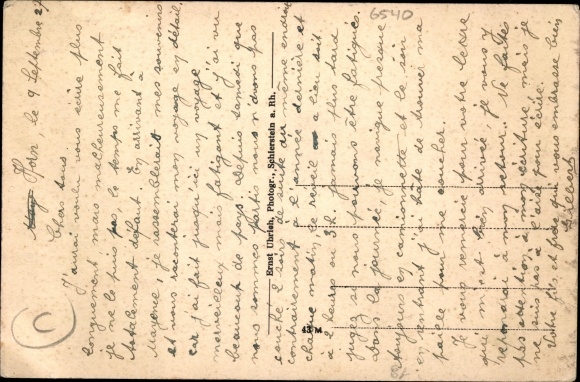 6540
le 9 Septembre 27
Chers tous
J'aurai voulu vous écrire plus
longuement mais malheureusement
je ne le puis pas le temps me fait
totalement défaut. En arrivant à
Mayence, je rassemblerait mes souvenirs
et vous raconterai mon voyage en détail
car j'ai fait jusqu'ici un voyage
merveilleux mais fatigant et j'ai vu
beaucoup de pays depuis samedi que
nous sommes partis nous n'avons pas
couché 2 soirs de suite au même endroit
contrairement à l'année dernière et
chaque matin le réveil a lieu soit
à 2 heures ou 3h jamais plus tard
jugez si nous pouvons être fatigués.
Dans la journée, je navigue presque
toujours en camionnette et le soir
en rentrant j'ai hâte de trouver ma
paille pour me coucher.
Je vous remercie pour votre lettre
qui m'est bien arrivée je vous y
reponsdrai à mon retour. Ne faites
pas attention à mon écriture mais je
ne suis pas à l'aise pour écrire.
Votre fils et frère qui vous embrasse bien
Gilbert
Ernst Uhrich, Photogr., Schierstein a. Rh.
43 M
C